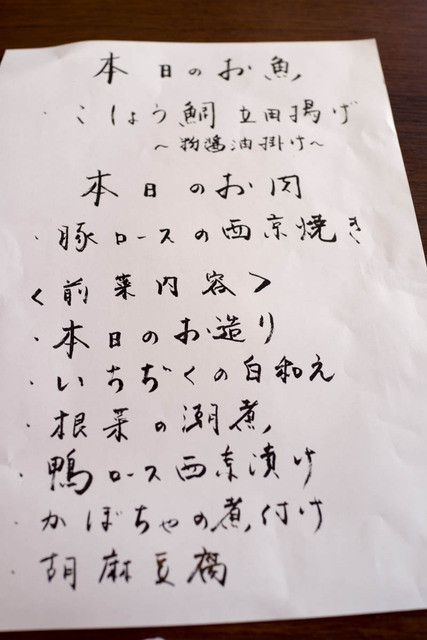 本日のお魚
・こしょう鯛 立田揚げ
～粉醤油掛け～
本日のお肉
・豚ロースの西京焼き
<前菜内容>
・本日のお造り
・いちぢくの白和え
・根菜の潮煮
・鴨ロース西京漬け
・かぼちゃの煮付け
・胡麻豆腐